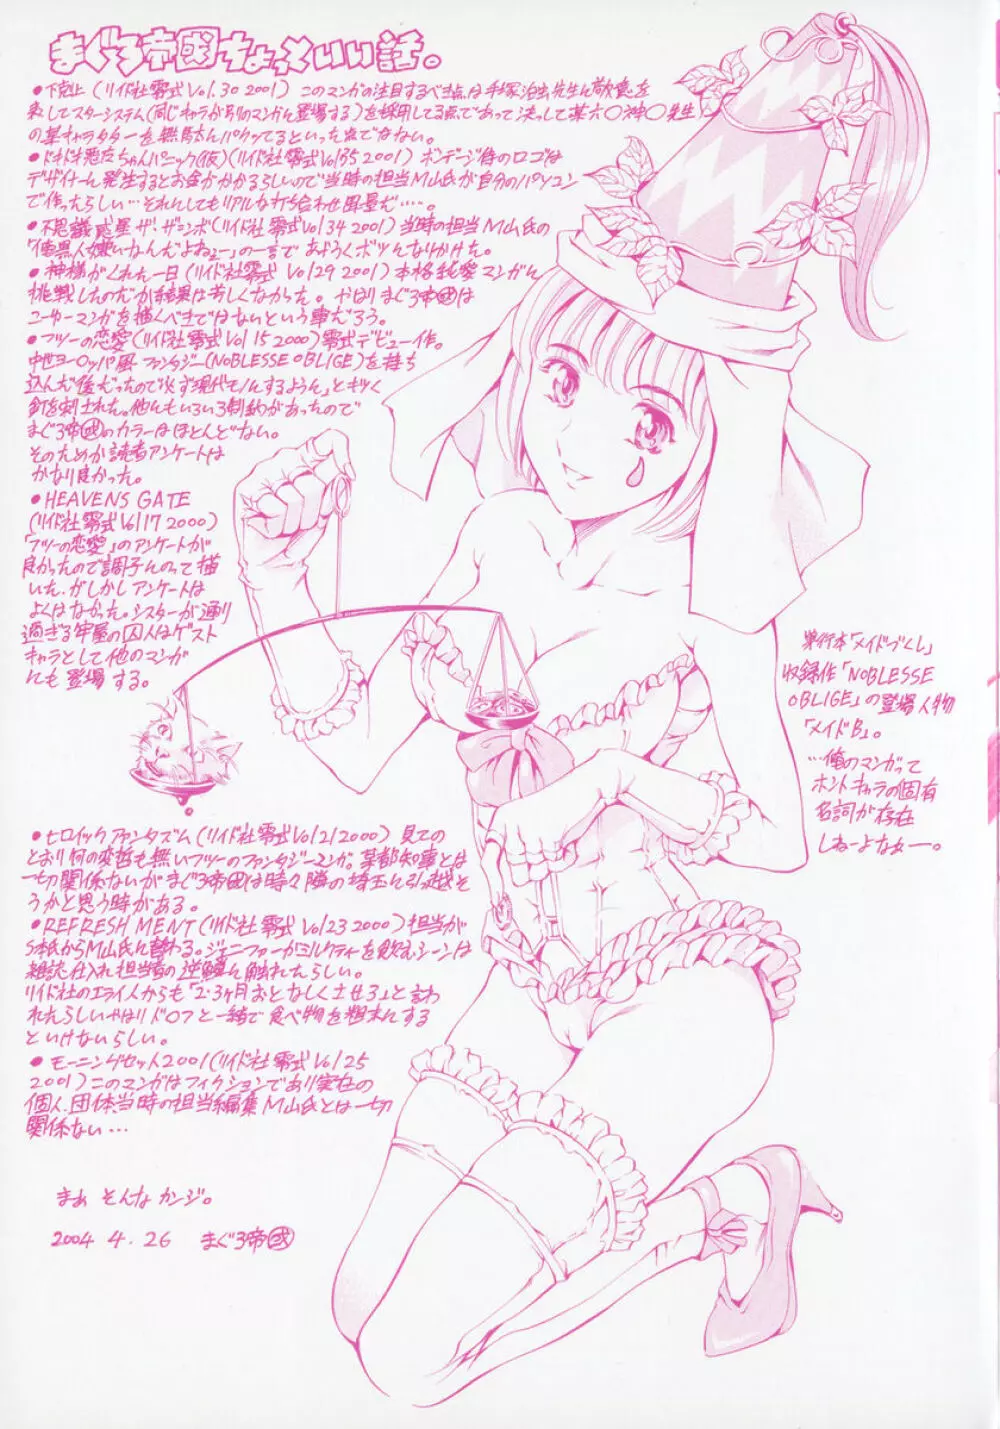 まぐろ帝國ちょっといい話。
●下剋上(リイド社零式Vol.30 2001) このマンガの注目するべき点は手塚治虫先生に敬意を
表してスターシステム(同じキャラが別のマンガに登場する)を採用してる点であって決して某六〇神〇先生
の某キャラクターを無駄にパクッてるといった訳ではない。
●ドキドキ悪友ちゃんパニック(仮)(リイド社零式Vol35 2001) ボンデージ侍のロゴは
デザイナーに発注するとお金がかかるらしいので当時の担当M山氏が自分のパソコン
で作ったらしい…それにしてもリアルな打ち合わせ風景だ……。
●不思議惑星ザ・ザンボ(リイド社零式Vol34 2001) 当時の担当M山氏の
「俺黒人嫌いなんだよねェー」の一言であやうくボツになりかけた。
●神様がくれた一日(リイド社零式 Vol29 2001)本格純愛マンガに
挑戦したのだが結果は芳しくなかった。やはりまぐろ帝國は
こーゆーマンガを描くべきではないという事だろう。
●フツーの恋愛(リイド社零式Vol15 2000)零式デビュー作。
中世ヨーロッパ風ファンタジー(NOBLESSE OBLIGE)を持ち
込んだ後だったので「必ず現代モノにするように」とキツく
釘を刺された。他にもいろいろ制約があったので
まぐろ帝國のカラーはほとんどない。
そのためか読者アンケートは
かなり良かった。
●HEAVENS GATE
(リイド社零式Vol17 2000)
「フツーの恋愛」のアンケートが
良かったので調子にのって描
いた。がしかしアンケートは
よくはなかった。シスターが通り
過ぎる牢屋の囚人はゲスト
キャラとして他のマンガ
にも登場する。
単行本「メイドづくし」
収録作「NOBLESSE
OBLIGE」の登場人物
「メイドB」。
…俺のマンガって
ホントキャラの固有
名詞が存在
しねーよなぁー。
●ヒロイックファンタズム(リイド社零式Vol21 2000) 見ての
とおり何の変哲も無いフツーのファンタジーマンガ。某都知事とは
一切関係ないがまぐろ帝國は時々隣の埼玉に引越そ
うかと思う時がある。
●REFRESH MENT(リイド社零式Vol.23 2000)担当が
S本氏からM山氏に替わる。ジェニファーがミルクティーを飲むシーンは
雑誌仕入れ担当者の逆鱗に触れたらしい。
リイド社のエライ人からも「2・3ヶ月おとなしくさせろ」と言わ
れたらしいやはりドロフと一緒で食べ物を粗末にする
といけないらしい。
●モーニングセット2001(リイド社零式Vol25
2001)このマンガはフィクションであり実在の
個人、団体当時の担当編集M山氏とは一切
関係ない…
まぁ そんなカンジ。
2004 4.26 まぐろ帝國